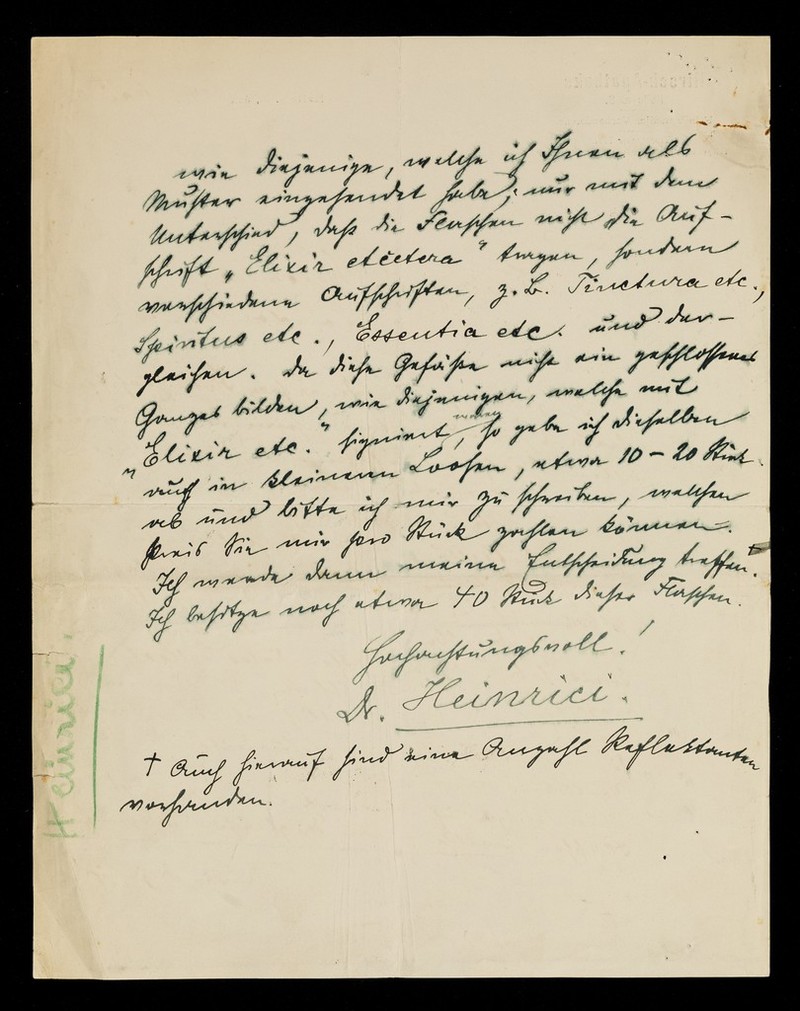 wie diejenige, welche ich Ihnen als
Muster eingesendet habe; nur mit dem
Unterschied, daß die Flaschen nicht die Auf-
schrift „Elixir etcetera" tragen, sondern
verschiedene Aufschriften, z. B. Tinctura etc.,
Spiritus etc., Essentia etc. und der-
gleichen. Da diese Gefäße nicht ein geschlossenes
Ganzes bilden, wie diejenigen, welche mit
„Elixir etc." signiert waren, so gebe ich dieselben
auch in kleineren Loosen, etwa 10 – 20 Stück
ab und bitte ich mir zu schreiben, welchen
Preis Sie mir pro Stück zahlen können.
Ich werde dann meine Entscheidung treffen. +
Ich besitze noch etwa 40 Stück dieser Flaschen.
Hochachtungsvoll!
Dr. Heinrici.
+ Auch hierauf sind eine Anzahl Reflektanten
vorhanden.
Heinrici.